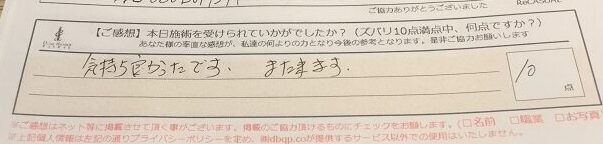 ご協力ありがとうございました
【ご感想】本日施術を受けられていかがでしたか？（ズバリ10点満点中、何点ですか？）
あなた様の率直な感想が、私達の何よりの力となり今後の参考となります。是非ご協力お願いします
気持ち良かったです。 また来ます。
10
点
※ご感想はネット等に掲載させて頂く事がございます。掲載のご協力頂けるものにチェックをお願します。（□名前 □職業 □お写真
※上記個人情報は左記の通りプライバシーポリシーを定め、㈱dbqp.coが提供するサービス以外での使用はいたしません。